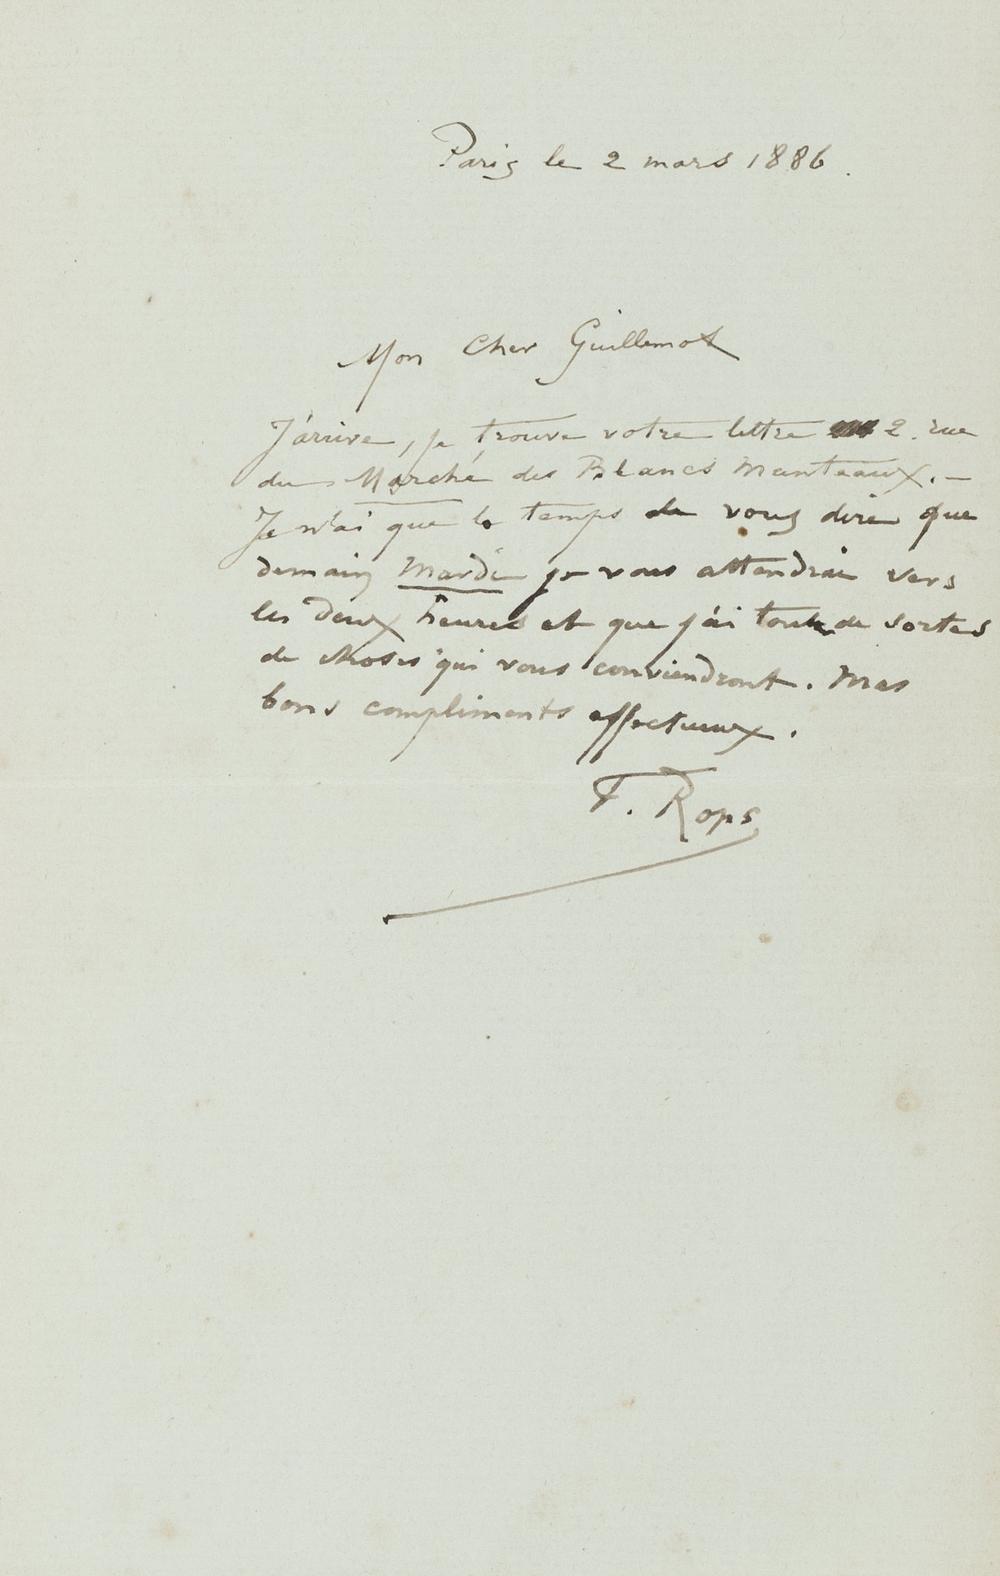 Paris le 2 mars 1886.
Mon Cher Guillemot
J'arrive, je trouve votre lettre 2. rue
du Marché des Blancs Manteaux. —
Je n'ai que le temps de vous dire que
demain Mardi je vous attendrai vers
les deux heures et que j'ai toute de sortes
de choses qui vous conviendront. Mes
bons compliments affectueux.
F. Rops